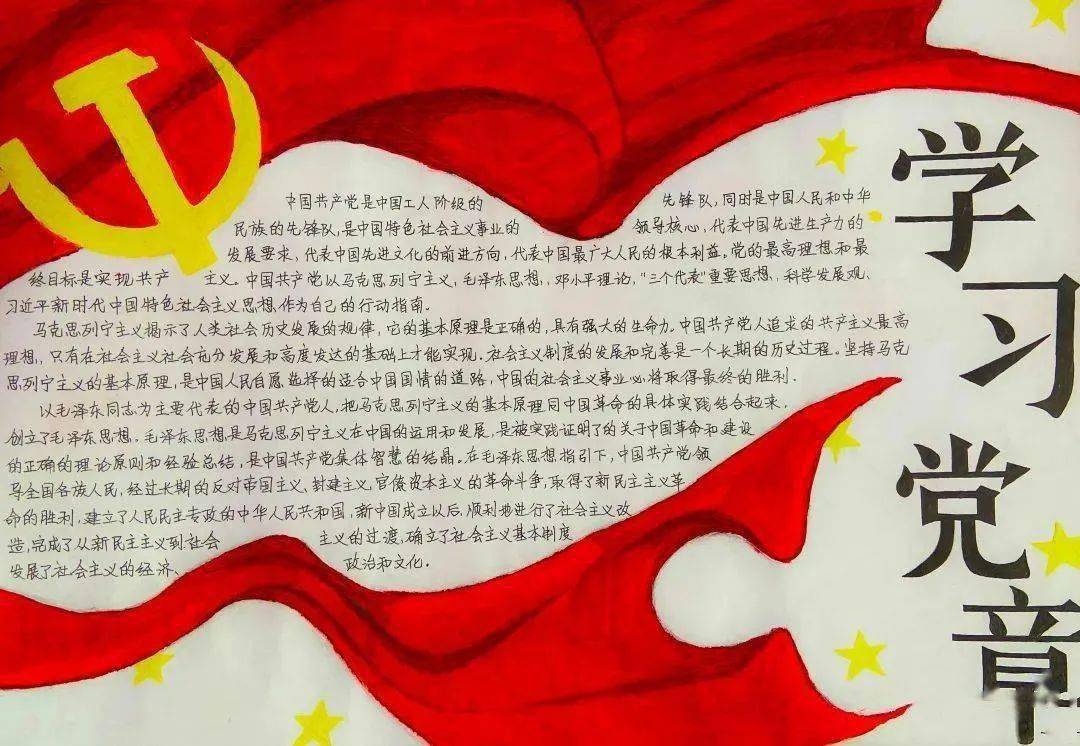 学习党章
中国共产党是中国工人阶级的先锋队，同时是中国人民和中华
民族的先锋队，是中国特色社会主义事业的领导核心，代表中国先进生产力的
发展要求，代表中国先进文化的前进方向，代表中国最广大人民的根本利益。党的最高理想和最
终目标是实现共产主义。中国共产党以马克思列宁主义，毛泽东思想，邓小平理论，“三个代表”重要思想、科学发展观、
习近平新时代中国特色社会主义思想作为自己的行动指南。
马克思列宁主义揭示了人类社会历史发展的规律，它的基本原理是正确的，具有强大的生命力。中国共产党人追求的共产主义最高
理想，只有在社会主义社会充分发展和高度发达的基础上才能实现。社会主义制度的发展和完善是一个长期的历史过程。坚持马克
思列宁主义的基本原理，是中国人民自愿选择的适合中国国情的道路，中国的社会主义事业必将取得最终的胜利。
以毛泽东同志为主要代表的中国共产党人，把马克思列宁主义的基本原理同中国革命的具体实践结合起来，
创立了毛泽东思想。毛泽东思想是马克思列宁主义在中国的运用和发展，是被实践证明了的关于中国革命和建设
的正确的理论原则和经验总结，是中国共产党集体智慧的结晶。在毛泽东思想指引下，中国共产党领
导全国各族人民，经过长期的反对帝国主义、封建主义、官僚资本主义的革命斗争，取得了新民主主义革
命的胜利，建立了人民民主专政的中华人民共和国，新中国成立以后，顺利地进行了社会主义改
造，完成了从新民主主义到社会主义的过渡，确立了社会主义基本制度
发展了社会主义的经济、政治和文化。